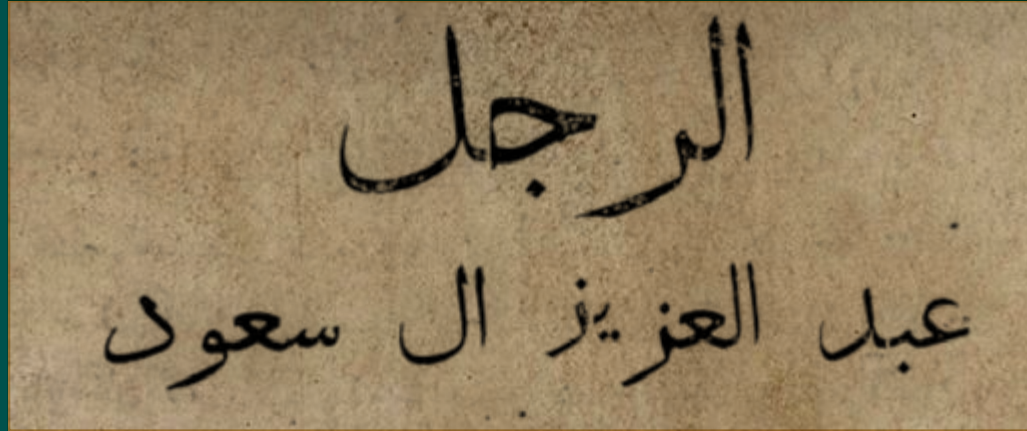 الرجل
عبد العزيز ال سعود